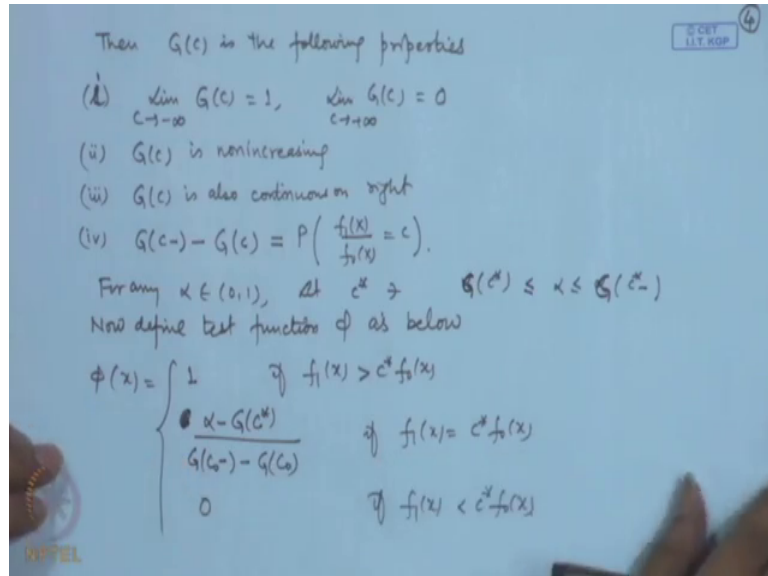 ④
© CET
I.I.T. KGP
Then G(c) is the following properties
(i) lim G(c) = 1, lim G(c) = 0
c→-∞ c→+∞
(ii) G(c) is nonincreasing
(iii) G(c) is also continuous on right
(iv) G(c-) - G(c) = P( f₁(X)/f₀(X) = c ).
For any α ∈ (0,1), let c* ∋ G(c*) ≤ α ≤ G(c*-)
Now define test function ϕ as below
ϕ(x) = { 1 if f₁(x) > c* f₀(x)
α - G(c*) / G(c₀-) - G(c₀) if f₁(x) = c* f₀(x)
0 if f₁(x) < c* f₀(x)
NPTEL